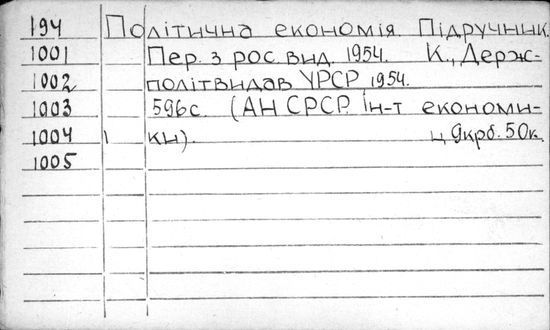 194 Політична економія. Підручник.
1001 Пер. з рос. вид. 1954. К., Держ-
1002 політвидав УРСР 1954.
1003 596с. (АН СРСР. Ін-т економи-
1004 ки). ц 9крб. 50к.
1005